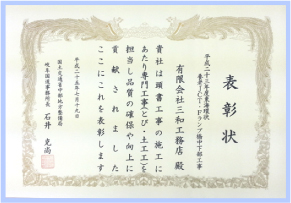 表彰状
平成二十三年度東海環状
養老JCT・Fランプ橋中下部工事
有限会社三和工務店 殿
貴社は頭書工事の施工に
あたり専門工事(とび・土工工)を
担当し品質の確保や向上に
貢献されました
ここにこれを表彰します
平成二十五年七月十九日
国土交通省中部地方整備局
岐阜国道事務所長 石井